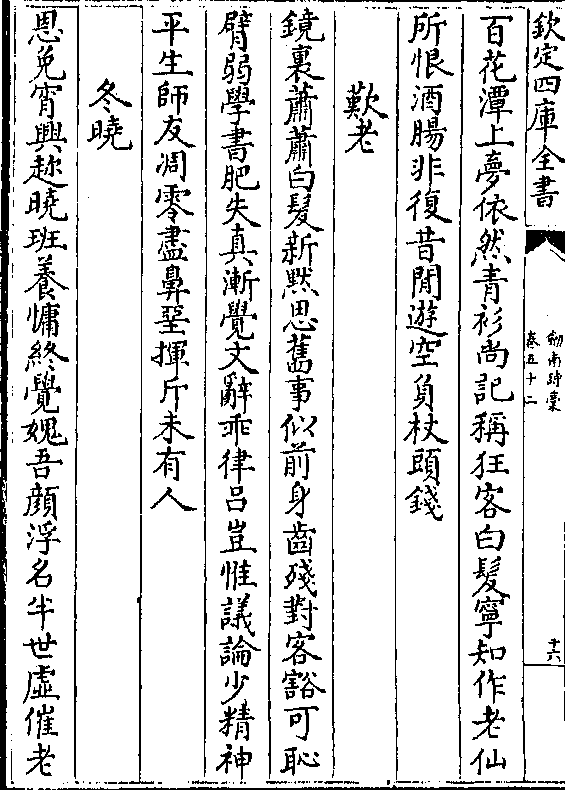 欽定四庫全書
劒南詩稾
卷五十二
十六
百花潭上夢依然青衫尚記稱狂客白髮寧知作老仙
所恨酒腸非復昔閒遊空負杖頭錢
歎老
鏡裏蕭蕭白髮新黙思舊事似前身齒殘對客豁可恥
臂弱學書肥失真漸覺文辭乖律吕豈惟議論少精神
平生師友凋零盡鼻堊揮斤未有人
冬曉
恩免宵興趂曉班養慵終覺媿吾顔浮名半世虛催老